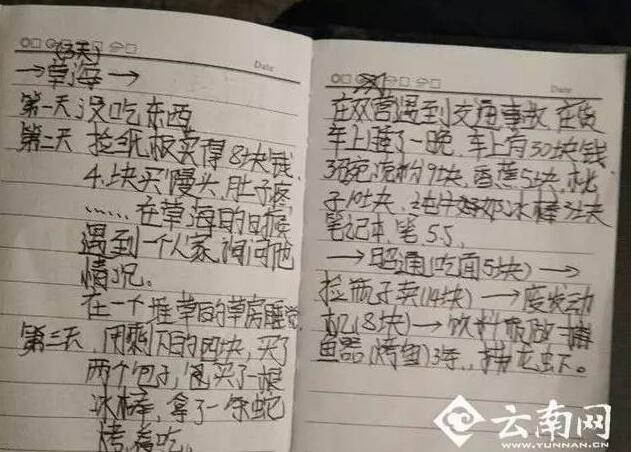 (3天)
→草海→
第一天 没吃东西
第二天 捡纸板买得8块钱
4块买馒头,肚子疼,
……在草海的时候
遇到一个人家询问他
情况。
在一个堆草的草房睡觉
第三天,用剩下的四块,买了
两个包子,买了一根
冰棒,拿了一条蛇
烤着吃。
Date
在双营遇到交通事故 在货
车上睡了一晚,车上有30块钱
3碗凉粉9块,香蕉5块,桃
子10块,冰棒3块
笔记本,笔5.5,
→昭通(吃面5块)→
捡瓶子卖(14块)→废发动
机(8块)→饮料瓶做捕
鱼器(烤鱼)3年,,龙虾。
Date
云南网
WWW.YUNNAN.CN